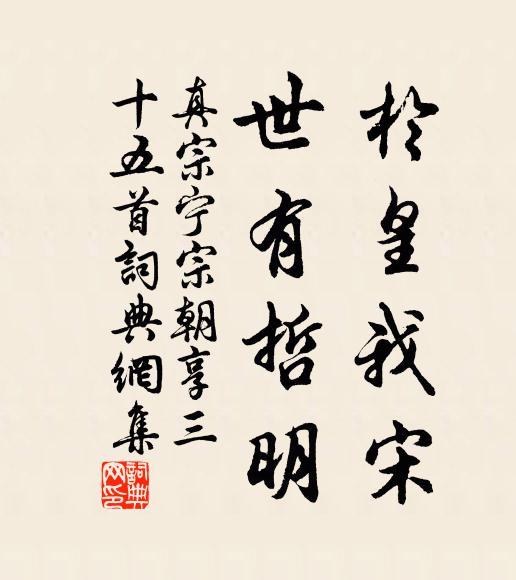 於皇我宋
世有哲明
真宗宁宗朝享三
十五首詞典網集
詞典网印